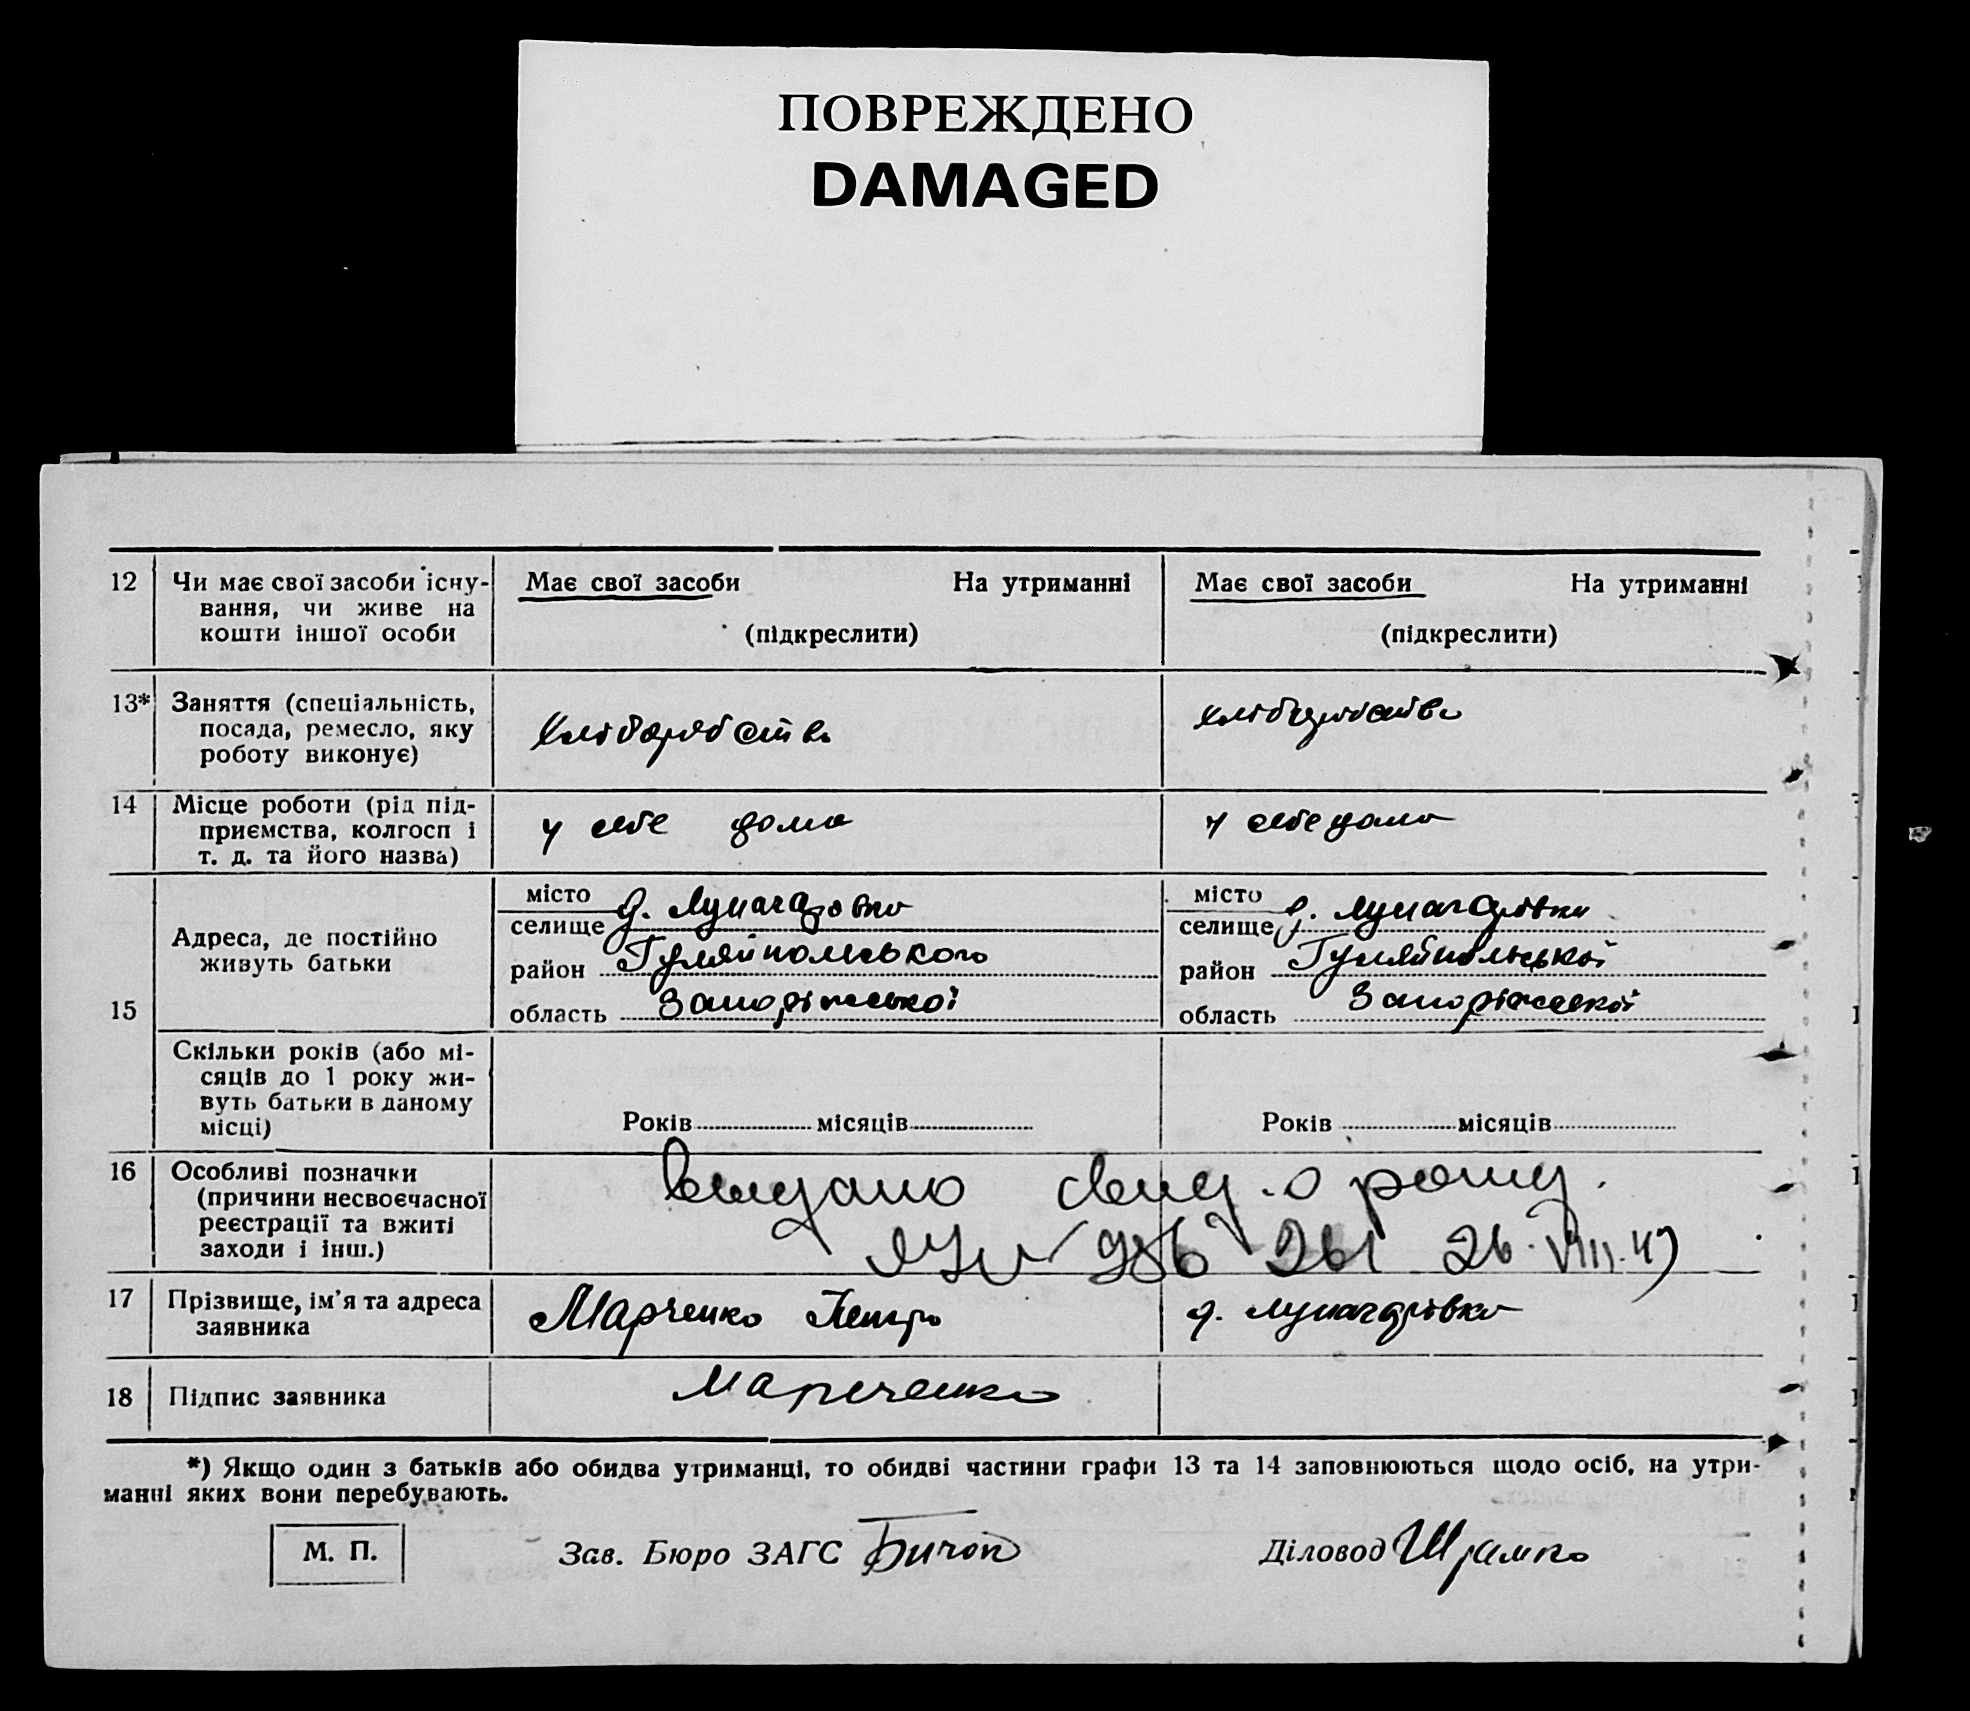 ПОВРЕЖДЕНО
DAMAGED
12 Чи має свої засоби існу-
вання, чи живе на
кошти іншої особи
Має свої засоби На утриманні
(підкреслити)
Має свої засоби На утриманні
(підкреслити)
13* Заняття (спеціальність,
посада, ремесло, яку
роботу виконує)
хліборобство
хліборобство
14 Місце роботи (рід під-
приємства, колгосп і
т. д. та його назва)
у себе дома
у себе дома
15 Адреса, де постійно
живуть батьки
місто
селище д. Луначаровка
район Гуляйпольського
область Запоріжської
місто
селище д. Луначарівка
район Гуляйпольської
область Запоріжської
Скільки років (або мі-
сяців до 1 року жи-
вуть батьки в даному
місці)
Років місяців
Років місяців
16 Особливі позначки
(причини несвоєчасної
реєстрації та вжиті
заходи і інш.)
Выдано свид. о рожд.
26.VIII.49
17 Прізвище, ім'я та адреса
заявника
Марченко Петро д. Луначарівка
18 Підпис заявника
Марченко
*) Якщо один з батьків або обидва утриманці, то обидві частини графи 13 та 14 заповнюються щодо осіб, на утри-
манні яких вони перебувають.
М. П. Зав. Бюро ЗАГС Діловод